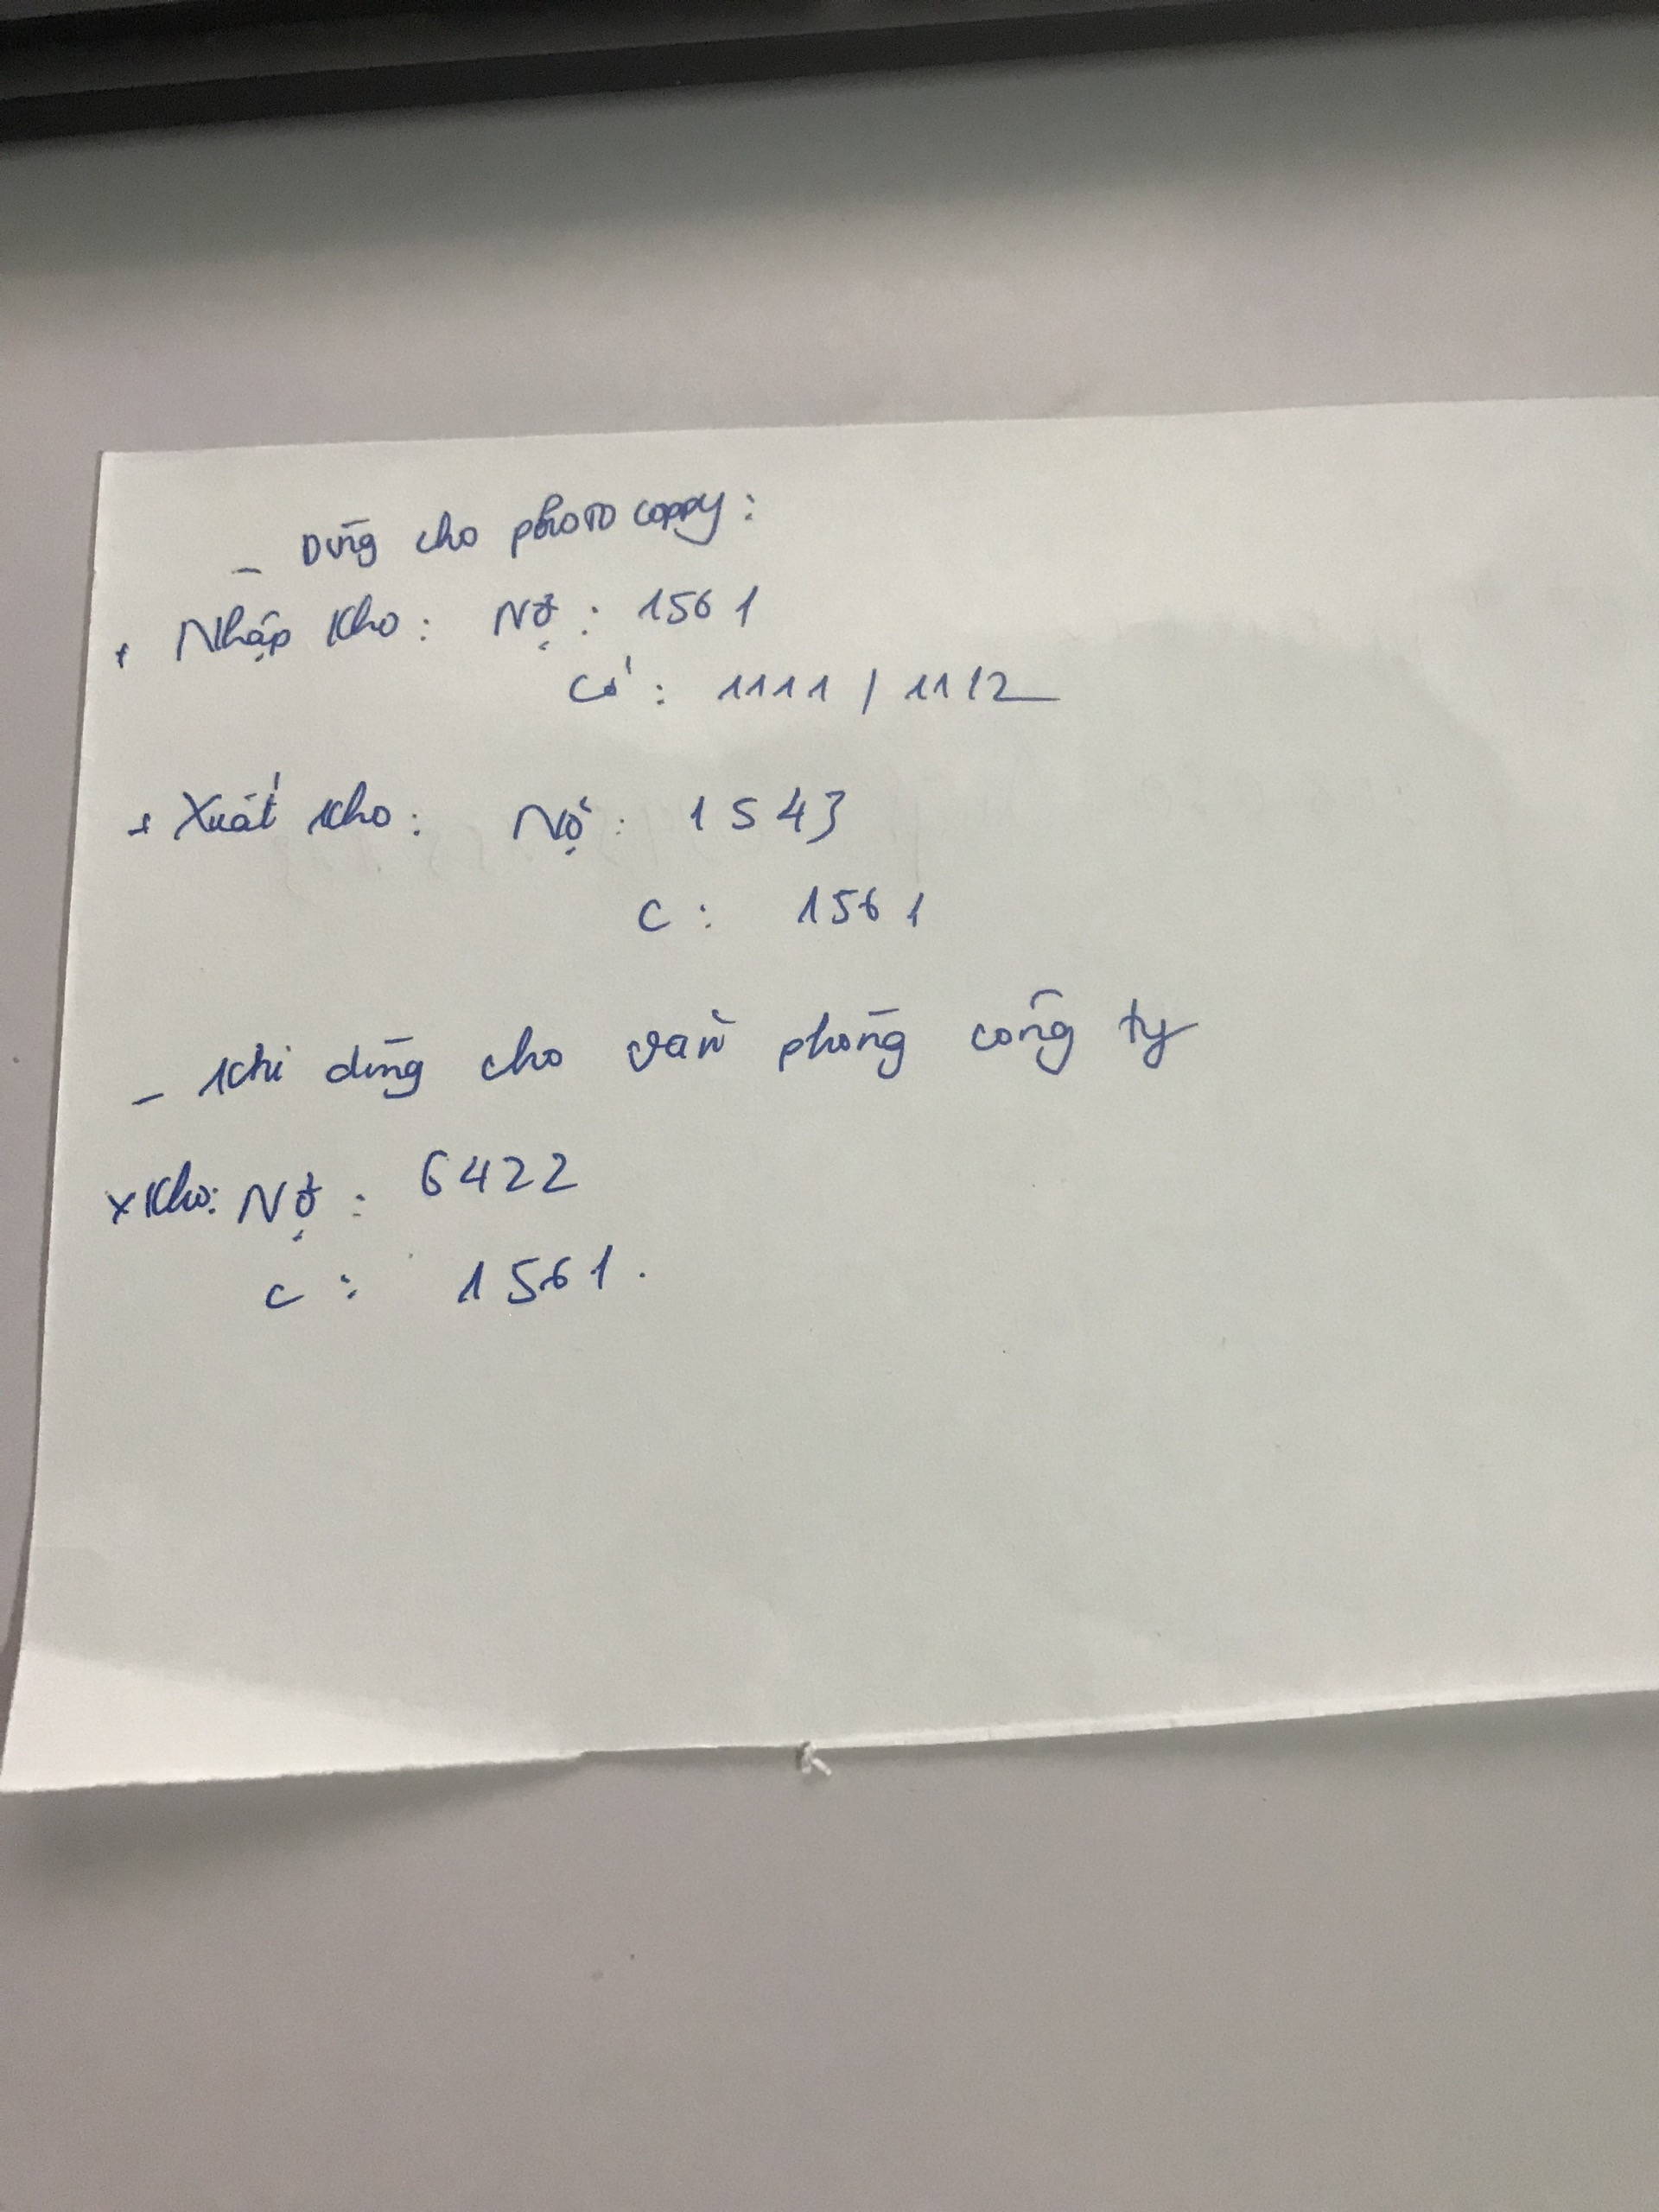 - Dùng cho photo coppy:
+ Nhập kho: Nợ: 1561
Có: 1111 / 1112
+ Xuất kho: Nợ: 1543
C: 1561
- Khi dùng cho văn phòng công ty
x kho: Nợ: 6422
C: 1561.